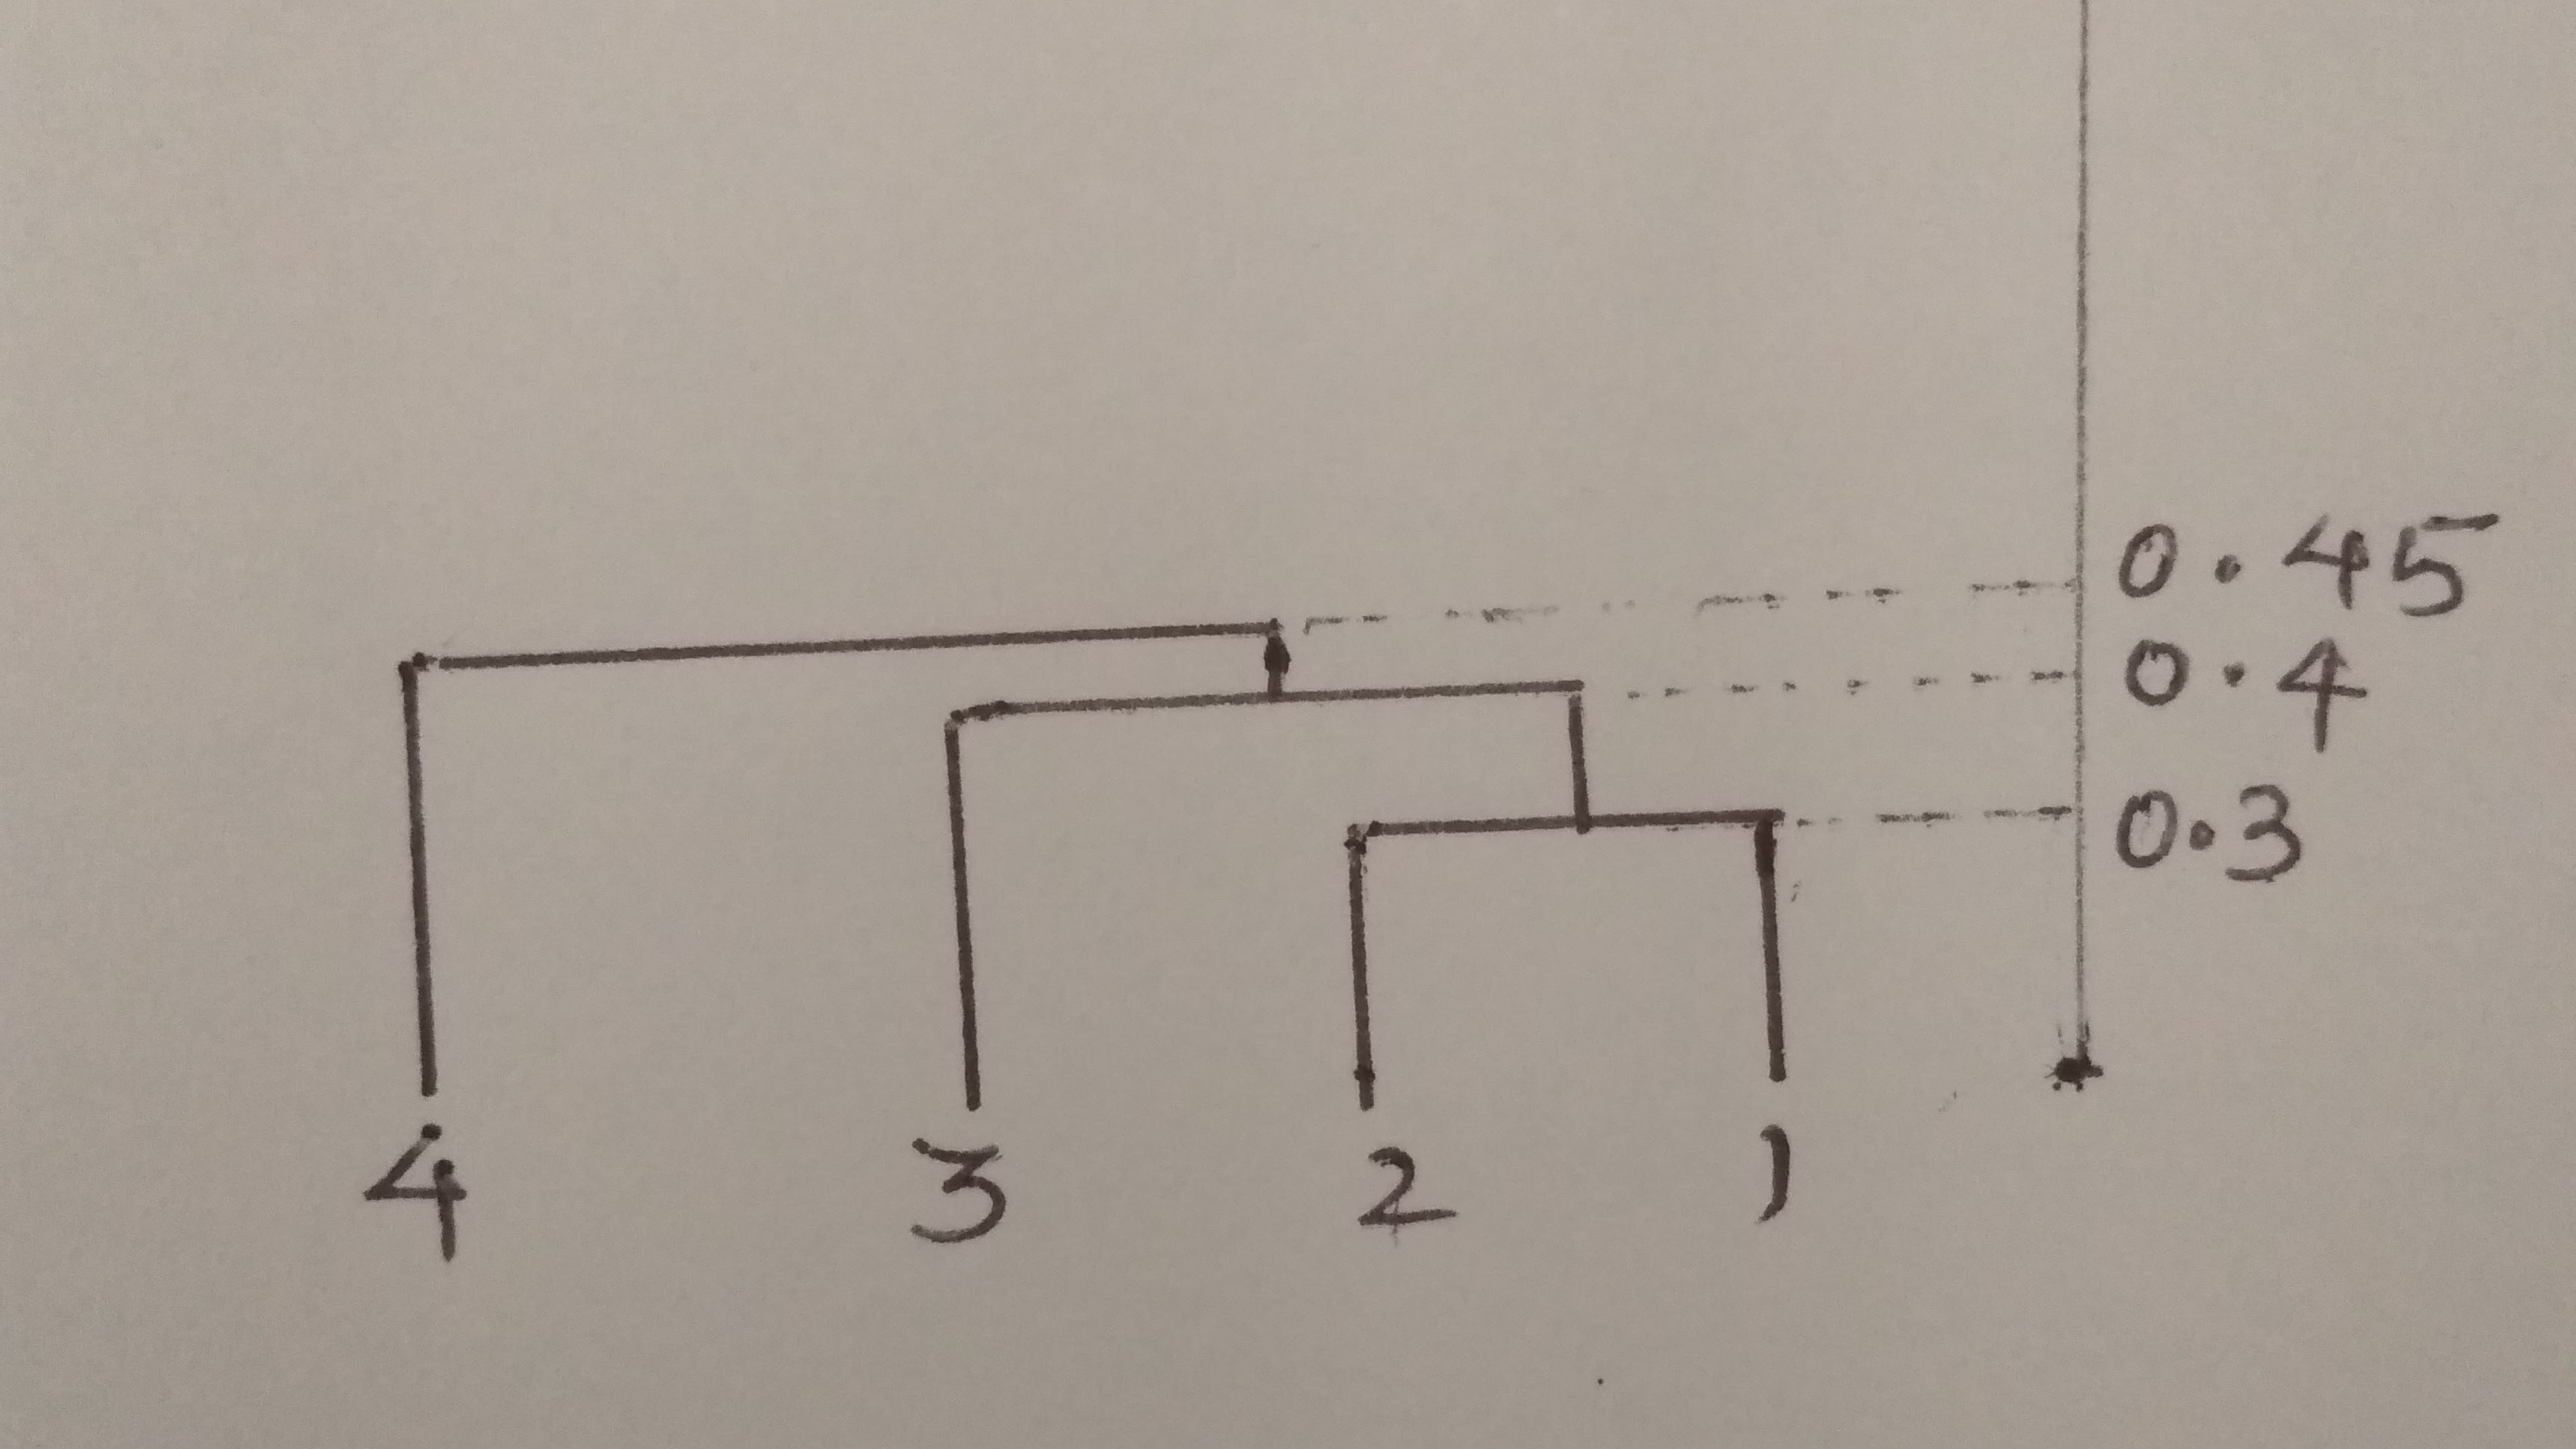 0.45
0.4
0.3
4 3 2 1